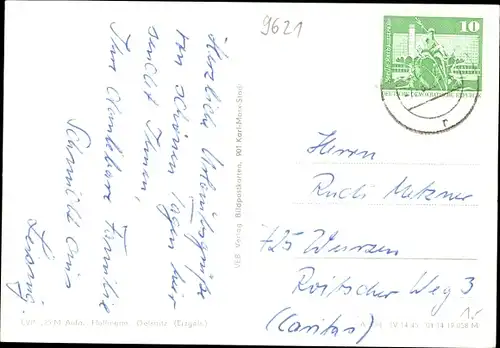 9621
Herzliche Urlaubsgrüße
von schönen Tagen hier
sendet Ihnen,
Ihre dankbare Familie
Schmidt aus
Leipzig.
VEB Verlag Bildpostkarten, 901 Karl-Marx-Stadt
10
DEUTSCHE DEMOKRATISCHE REPUBLIK
Herrn
Rudi Metzner
725 Wurzen
Roitscher Weg 3
(Caritas)
Oelsnitz (Erzgeb.)